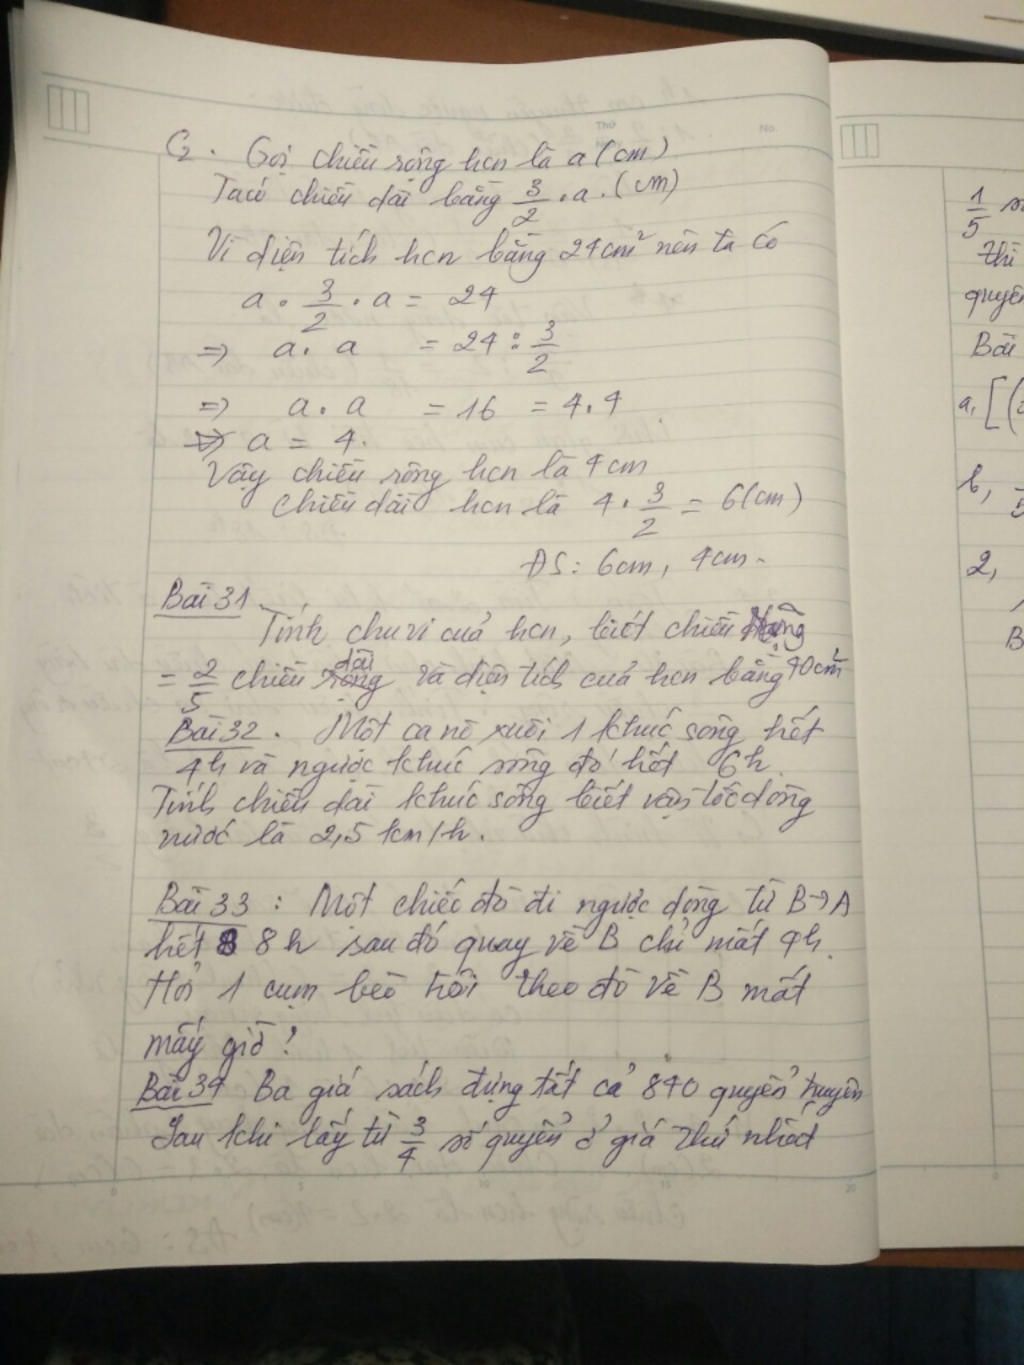 Thứ
No.
C2. Gọi chiều rộng hcn là a (cm)
Ta có chiều dài bằng 3/2 . a . (cm)
Vì diện tích hcn bằng 24cm² nên ta có
a . 3/2 . a = 24
=> a . a = 24 : 3/2
=> a . a = 16 = 4.4
=> a = 4.
Vậy chiều rộng hcn là 4cm
Chiều dài hcn là 4 . 3/2 = 6(cm)
ĐS: 6cm, 4cm.
Bài 31
Tính chu vi của hcn, biết chiều rộng
= 2/5 chiều dài và diện tích của hcn bằng 40cm²
Bài 32. Một ca nô xuôi 1 khúc sông hết
4h và ngược khúc sông đó hết 6h
Tính chiều dài khúc sông biết vận tốc dòng
nước là 2,5 km/h.
Bài 33 : Một chiếc đò đi ngược dòng từ B→A
hết 8h sau đó quay về B chỉ mất 4h.
Hỏi 1 cụm bèo trôi theo đò về B mất
mấy giờ?
Bài 34 Ba giá sách đựng tất cả 840 quyển truyện
Sau khi lấy từ 3/4 số quyển ở giá thứ nhất
1/5
thì
quyển
Bài
a, [(
b,
5
2,
B